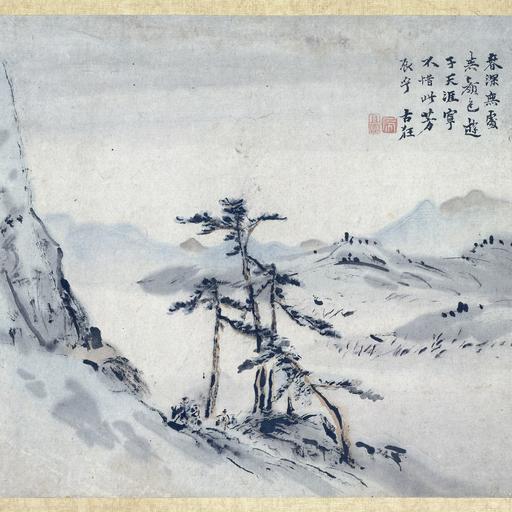 春深無處
無顏色遊
子天涯寧
不惜此芳
辰乎 古狂